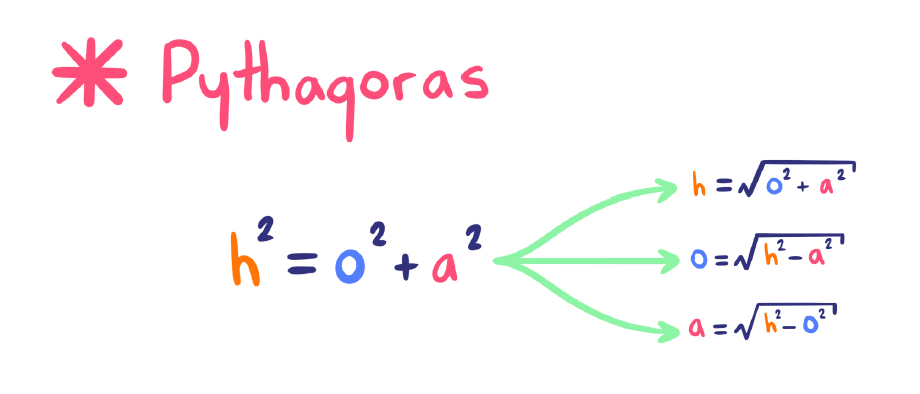 Pythagoras
h² = o² + a²
h = √(o² + a²)
o = √(h² − a²)
a = √(h² − o²)